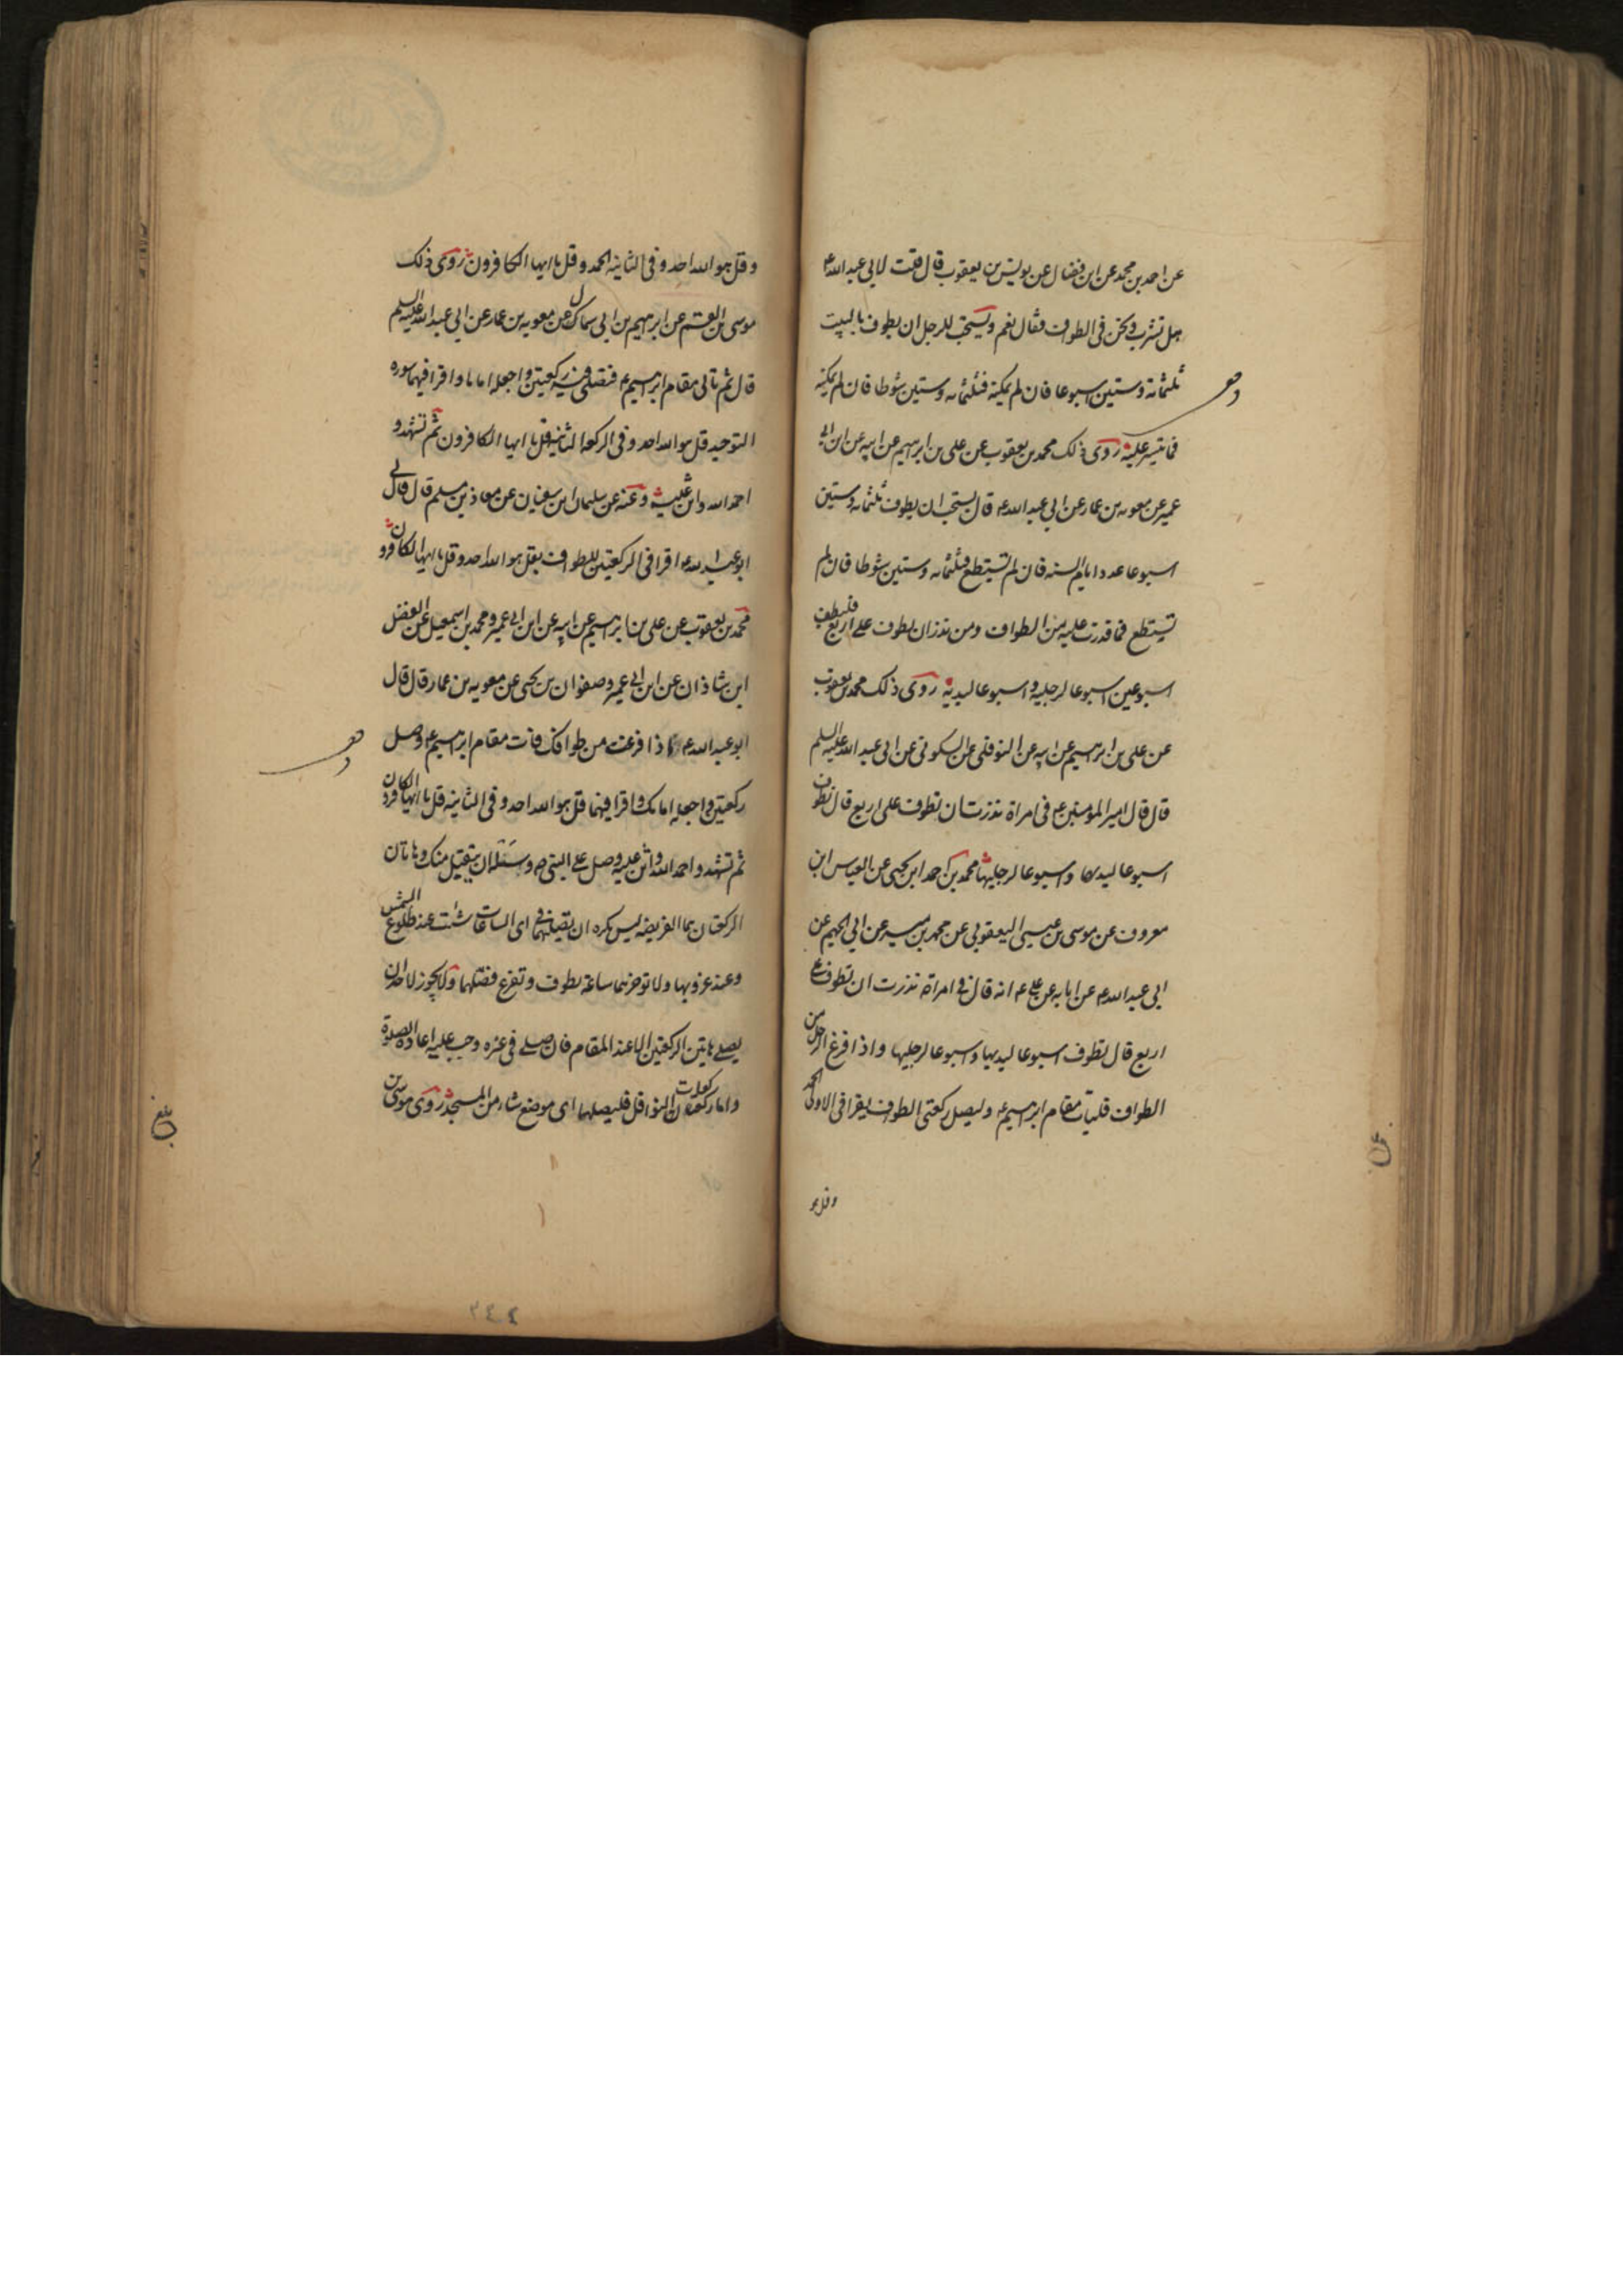 عن احمد بن محمد عن ابن فضال عن يونس بن يعقوب قال قلت لابي عبد الله ع
هل نشرب ونحن في الطواف فقال نعم ويستحب للرجل ان يطوف بالبيت
ثلثمائة وستين اسبوعا فان لم يمكنه فثلثمائه وستين شوطا فان لم يمكنه
فما تيسر عليه روى ذلك محمد بن يعقوب عن علي بن ابراهيم عن ابيه عن ابن ابي
عمير عن معويه بن عمار عن ابي عبد الله ع قال يستحب ان يطوف ثلثمائه وستين
اسبوعا عدد ايام السنه فان لم تستطع فثلثمائه وستين شوطا فان لم
تستطع فما قدرت عليه من الطواف ومن نذر ان يطوف على اربع فليطف
اسبوعين اسبوعا لرجليه واسبوعا ليديه روى ذلك محمد بن يعقوب
عن علي بن ابراهيم عن ابيه عن النوفلي عن السكوني عن ابي عبد الله عليه السلم
قال قال امير المومنين ع في امراة نذرت ان تطوف على اربع قال تطوف
اسبوعا ليديها واسبوعا لرجليها محمد بن احمد ابن يحيى عن العباس ابن
معروف عن موسى بن عيسى اليعقوبي عن محمد بن ميسر عن ابي الجهم عن
ابي عبد الله ع عن ابايه عن علي ع انه قال في امراة نذرت ان تطوف على
اربع قال تطوف اسبوعا ليديها واسبوعا لرجليها واذا فرغ الرجل من
الطواف فليات مقام ابراهيم ع وليصل ركعتي الطواف يقرا في الاولى الحمد
وقل هو
وقل هو الله احد وفي الثانيه الحمد وقل يا ايها الكافرون روى ذلك
موسى بن القسم عن ابرهيم بن ابي سماك عن معويه بن عمار عن ابي عبد الله عليه السلم
قال ثم تاتي مقام ابراهيم ع فتصلي فيه ركعتين واجعله اماما واقرا فيهما سوره
التوحيد قل هو الله احد وفي الركعه الثانيه قل يا ايها الكافرون ثم تشهد و
احمد الله واثن عليه وعنه عن سليمان ابن سفيان عن معاذ بن مسلم قال قال لي
ابو عبد الله ع اقرا في الركعتين للطواف بقل هو الله احد وقل يا ايها الكافرون
محمد بن يعقوب عن علي بن ابرهيم عن ابيه عن ابن ابي عمير ومحمد بن اسمعيل عن الفضل
ابن شاذان عن ابن ابي عمير وصفوان بن يحيى عن معويه بن عمار قال قال
ابو عبد الله ع اذا فرغت من طوافك فات مقام ابراهيم ع وصل
ركعتين واجعله امامك واقرا فيهما قل هو الله احد وفي الثانيه قل يا ايها الكافرون
ثم تشهد واحمد الله واثن عليه وصل على النبي ص وسئله ان يتقبل منك وهاتان
الركعتان هما الفريضه ليس يكره ان تصليهما في اي الساعات شئت عند طلوع الشمس
وعند غروبها ولا توخرهما ساعة تطوف وتفرغ فصلهما ولا يجوز لاحد ان
يصلي هاتين الركعتين الا عند المقام فان صلى في غيره وجب عليه اعادة الصلوة
واما ركعات النوافل فليصلهما اي موضع شاء من المسجد روى موسى بن
بلغ